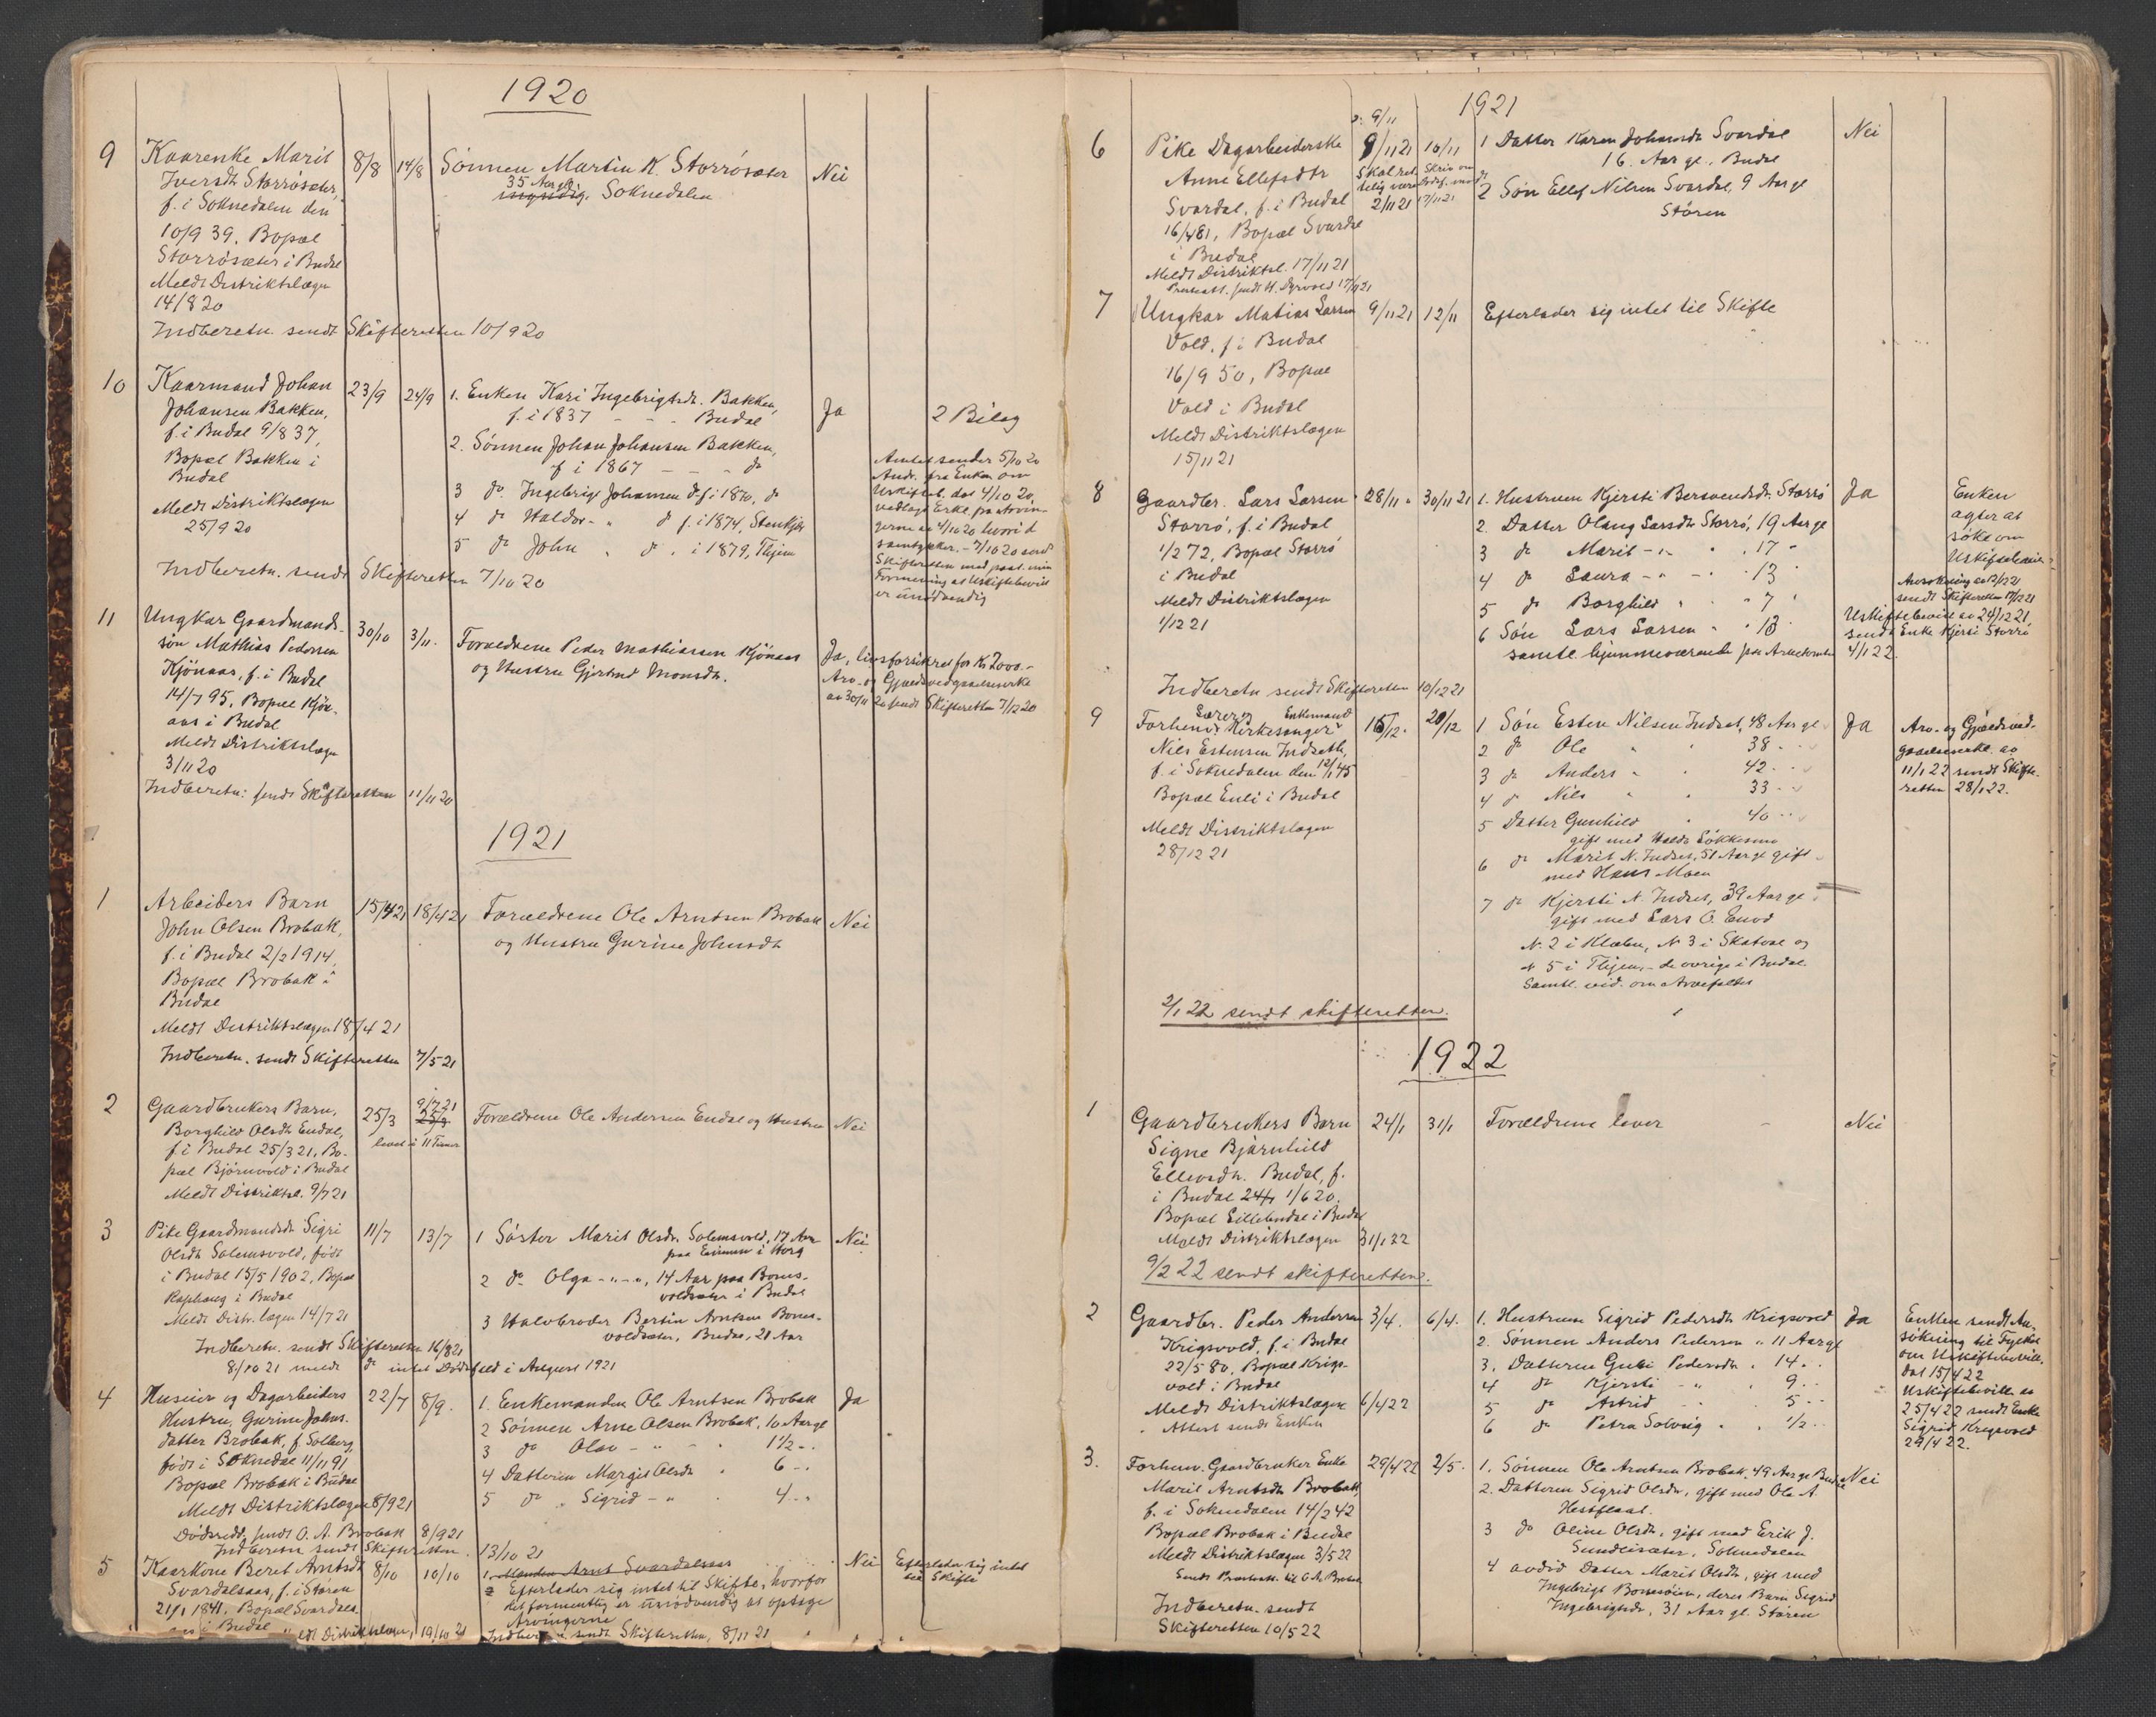 1920
9 Kaarenke Marit 8/8 14/8 Sönnen Martin K. Storrösæter Nei
Iversdtr Storrösæter, 35 Aar gl.
f. i Soknedalen den myndig, Soknedalen
10/9 39, Bopæl
Storrösæter i Budal
Meldt Distriktslægen
14/8 20
Indberetn. sendt Skifteretten 10/9 20
10 Kaarmand Johan 23/9 24/9 1. Enken Kari Ingebrigtsdr. Bakken,
Johansen Bakken, f. i 1837 - - - Budal Ja 2 Bilag
f. i Budal 9/8 37, 2. Sönnen Johan Johansen Bakken,
Bopæl Bakken i f i 1867 - - - do
Budal 3 do Ingebrigt Johansen do f i 1870, do
Meldt Distriktslægen 4 do Haldor - " do f. i 1874, Stenkjær
25/9 20 5 do John " do " i 1879, Flyen
Amtet sender 5/10 20
Andr. fra Enken om
Uskiftet. dat 4/10 20,
vedlagt Erkl. fra Arvin-
gerne av 4/10 20 hvori d
samtykker. - 7/10 20 sendt
Skifteretten med paat. min
Formening at Uskiftebevill
er unödvendig
Indberetn. sendt Skifteretten 7/10 20
11 Ungkar Gaardmands- 30/10 3/11. Forældrene Peder Mathiassen Kjönaas Ja, livsforsikret for Kr 2000.-
sön Mathias Pedersen og Hustru Gjertrud Monsdr. Arv- og Gjældsvedgaaelseserkl
Kjönaas, f. i Budal av 30/11 20 sendt Skifteretten 7/12 20
14/7 95, Bopæl Kjön-
aas i Budal
Meldt Distriktslægen
3/11 20
Indberetn: sendt Skifteretten 11/11 20
1921
1 Arbeiders Barn 15/4 21 18/4 21 Forældrene Ole Arntsen Brobak Nei
John Olsen Brobak, og Hustru Gurine Johnsdtr
f. i Budal 2/2 1914,
Bopæl Brobak i
Budal
Meldt Distriktslægen 18/4 21
Indberetn. sendt Skifteretten 7/5 21
2 Gaardbrukers Barn, 25/3 9/7 21 Forældrene Ole Andersen Endal og Hustru Nei
Borghild Olsdtr Endal, levet i 11 Timer
f. i Budal 25/3 21, Bo-
pæl Björnvold i Budal
Meldt Distriktsl. 9/7 21
3 Pike Gaardmandsdtr Sigri 11/7 13/7 1 Söster Marit Olsdr. Solemsvold, 17 Aar Nei
Olsdtr Solemsvold, född paa Eivmun i Horg
i Budal 15/5 1902, Bopæl 2 do Olga -"-", 14 Aar paa Bones-
Raphaug i Budal voldsæter i Budal
Meldt Distr. lægen 14/7 21 3 Halvbroder Bersin Arntsen Bones-
voldsæter, Budal, 21 Aar
Indberetn. sendt Skifteretten 16/8 21
8/10 21 meldt do intet Dödsfald i August 1921
4 Huseier og Dagarbeiders 22/7 8/9. 1. Enkemanden Ole Arntsen Brobak Ja
Hustru, Gurine Johns- 2 Sönnen Arne Olsen Brobak, 10 Aar gl
datter Brobak, f. Solberg, 3 do Olav - " - 1½ - .
född i Soknedal 11/11 91 4 Datteren Margit Olsdtr " 6 - .
Bopæl Brobak i Budal 5 do " Sigrid - " . 4 - .
Meldt Distriktslægen 8/9 21
Dödsedd. sendt O. A. Brobak 8/9 21
Indberetn sendt Skifteretten . 13/10 21
5 Kaarkone Beret Arntsdtr 8/10 10/10 1. Manden Arnt Svardalsaas Nei Efterlader sig intet
Svardalsaas, f. i Stören 2 Efterlader sig intet til Skifte, hvorfor til Skifte
21/1 1841, Bopæl Svardals- det formentlig er unödvendig at optage
aas i Budal Arvingerne
Meldt Distriktslægen, 19/10 21 Indberetn sendt Skifteretten, 8/11 21
1921
6 Pike Dagarbeiderske 9/11 21 10/11 1 Datter Karen Johansdtr Svardal Nei
Anne Ellefsdtr Skal ret- Skriv om 16 Aar gl. Budal
Svardal, f. i Budal telig være 2 Sön Ellef Nilsen Svardal, 9 Aar gl
16/4 81, Bopæl Svardal 2/11 21 17/11 21 Stören
i Budal
Meldt Distriktsl. 17/11 21
7 Ungkar Matias Larsen 9/11 21 12/11 Efterlader sig intet til Skifte
Vold, f i Budal
16/9 50, Bopæl
Vold i Budal
Meldt Distriktslægen
15/11 21
8 Gaardbr. Lars Larsen 28/11 " 30/11 21 1. Hustruen Kjersti Bersvendsdr. Storrö Ja Enken
Storrö, f. i Budal 2. Datter Olaug Larsdtr Storrö, 19 Aar gl agter at
1/2 72, Bopæl Storrö 3 do Marit - " " . 17 " söke om
i Budal 4 do Laura - " - . 13 " Uskiftebevill-
Meldt Distriktslægen 5 do Borghild " " 7 " Ansökning av 12/12 21
1/12 21 6 Sön Lars Larsen " " 13 " sendt Skifteretten 17/12 21
samtl. hjemmeværende paa Arnestedet Uskiftebevill av 24/12 21
sendt Enke Kjersti Storrö
4/1 22.
Indberetn sendt Skifteretten 10/12 21
9 Forhenv. Lærer og Kirkesanger Enkemand 16/12. 20/12 1 Sön Esten Nilsen Indset, 48 Aar gl Ja Arv- og Gjældsved-
Nils Estensen Indseth, 2 do Ole " " 38 - . gaaelseserkl. av
f. i Soknedalen den 12/1 45 3 do Anders " " 42 - . 11/1 22 sendt Skifte-
Bopæl Enli i Budal 4 do Nils " " 33 - . retten 28/1 22.
Meldt Distriktslægen 5 Datter Gunhild " 40 - .
28/12 21 gift med Haldr Lökkesmo
6 do Marit N. Indset, 51 Aar gl gift
med Hans Moen
7 do Kjersti N. Indset, 39 Aar gl
gift med Lars O. Enod
N. 2 i Klæbu, N 3 i Skatval og
N 5 i Flyen, - de övrige i Budal.
Samtl. vid. om Arvefaldet
2/1 22 sendt skifteretten.
1922
1 Gaardbrukers Barn 24/1 31/1 Forældrene lever Nei
Signe Bjarnhild
Ellevsdtr. Budal, f.
i Budal 24/1 1/6 20.
Bopæl Lillebudal i Budal
Meldt Distriktslægen 31/1 22
9/2 22 sendt skifteretten.
2 Gaardbr. Peder Andersen 3/4. 6/4. 1. Hustruen Sigrid Pedersdtr Krigsvold Ja Enken sendt An-
Krigsvold, f. i Budal 2. Sönnen Anders Pedersen " 11 Aar gl sökning til Fylket
22/5 80, Bopæl Krigs- 3. Datteren Guri Pedersdtr " 14 - . om Uskiftebevill.
vold i Budal 4 do Kjersti - " " 9 - . dat 15/4 22
Meldt Distriktslægen 6/4 22 5 do Astrid - " . 5 - . Uskiftebevill. av
Attest sendt Enken 6 do Petra Solveig " . ½ - . 25/4 22 sendt Enke
Sigrid Krigsvold
29/4 22.
3. Forhenv. Gaardbruker Enke 29/4 22 2/5. 1. Sönnen Ole Arntsen Brobak, 49 Aar gl Budal Nei
Marit Arntsdtr Brobak, 2. Datteren Sigrid Olsdtr, gift med Ole A.
f. i Soknedalen 14/2 42 Hestflaat.
Bopæl Brobak i Budal 3 do Oline Olsdtr, gift med Erik J.
Meldt Distriktslægen 3/5 22 Sundlisæter, Soknedalen
4 avdöd Datter Marit Olsdtr, gift med
Indberetn. sendt Ingebrigt Bonesöien, deres Barn Sigrid
Skifteretten 10/5 22 Ingebrigtsdr, 31 Aar gl. Stören